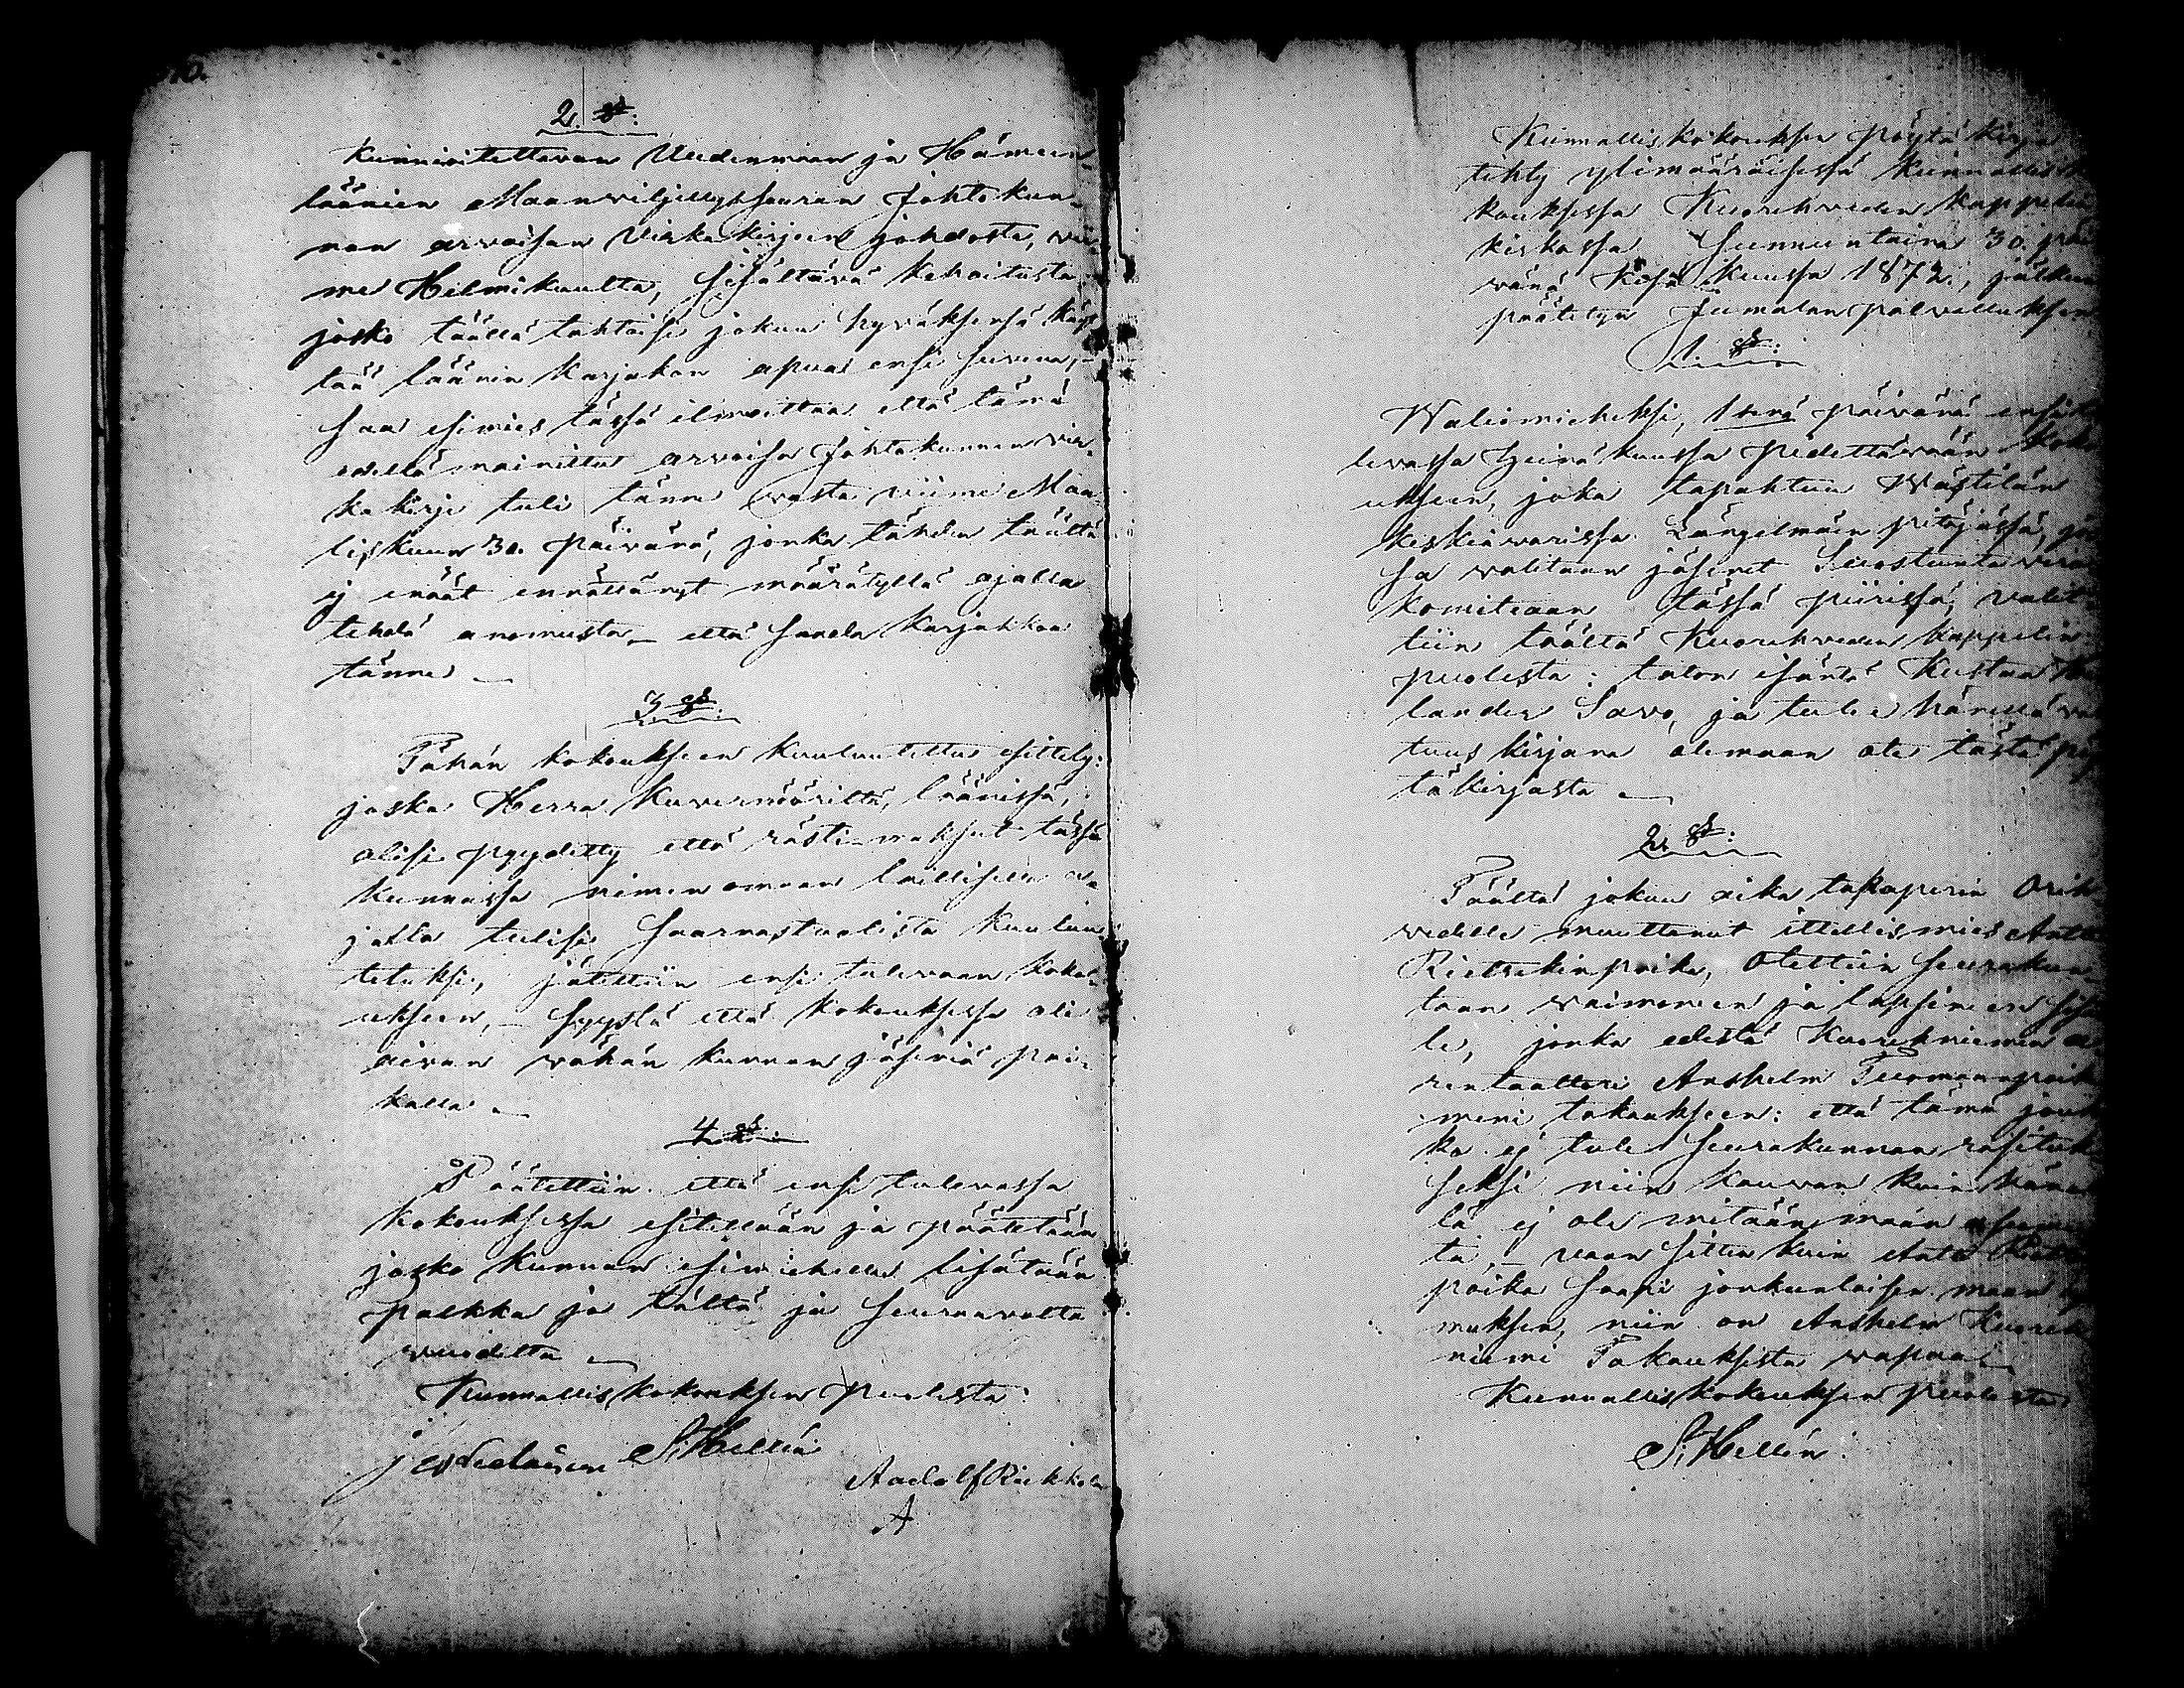 10.
2. §:
Kunnioitettavan Uudenmaan ja Hämeen
läänien Maanviljellysseuran Johtokun-
nan arvoisan Virkakirjeen johdosta, vii-
me Helmikuulta, sisältävä kehoitusta
josko täällä tahtoisi jokun hyväksensä käyt-
tää läänin karjakon apua ensi suvena,
saa esimies tässä ilmoittaa että tämä
edellä mainittu arvoisa Johtokunnan vir-
kakirje tuli tänne vasta viime Maa-
liskuun 30. päivänä, jonka tähden täältä
ej enäät ennättänyt määrätyllä ajalla
tehdä anomusta, että saada karjakkoa
tänne
3 §:
Tähän kokoukseen kuulutettu esittely:
joska Herra Kuvernööriltä, läänissä,
olisi pyydetty että rästi maksut tässä
kunnassa nimen omaan laillisella a-
jalla tulisi Saarnastuolista kuulu-
tetuksi, jätettiin ensi tulevaan koko-
ukseen, – syystä että kokouksessa oli
aivan vähän kunnan jäseniä pai-
kalla
4 §:
Päätettiin että ensi tulevassa
kokouksessa esitellään ja päätetään
josko kunnan esimiehelle lisätään
palkka ja tältä ja seuraavalta
vuodelta
Kunnalliskokouksen puolesta:
S. Hellén
Aadolf
A
Kunnallis kokouksen pöytä kirja
tehty ylimääräisessä kunnallisko-
kouksessa Kuorehveden kappelin
kirkossa Sunnuntaina 30. päi-
vänä Kesä kuussa 1872., jälkeen
päätetyn Jumalan palvelluksen
1. §:
Waliomieheksi, 1senä päivänä ensitu-
levassa Heinä kuussa pidettävään koko-
ukseen, joka tapahtuu Wästilän
keskievarissa Längelmäen pitäjässä, jos-
sa valitaan jäsenet Suostuntavero
komiteaan tässä piirissä, valit-
tiin täältä Kuorehveden kappelin
puolesta: talon isäntä Kustaa
lander Savo, ja tulee hänellä val-
tuus kirjana olemaan ote tästä pöy-
täkirjasta
2. §:
Täältä jokuu aika takaperin Orih-
vedelle muuttanut ittellismies Antti
Rietrekinpoika, Otettiin Seurakun-
taan vaimoneen ja lapsineen sisäl-
le, jonka edestä Kuorehniemen a-
rentaatteri Anshelm Tuomaanpoika
meni takaukseen: että tämä jouk-
ko ej tule Seurakunnan rasituk-
seksi niin kauvan kuin hänel-
lä ej ole mitään maan asumus-
ta, – vaan sitten kuin Antti
poika saapi jonkunlaisen maan
muksen, niin on Anshelm Kuoreh-
niemi Takauksesta vapaa
Kunnalliskokouksen puolesta
S. Hellén